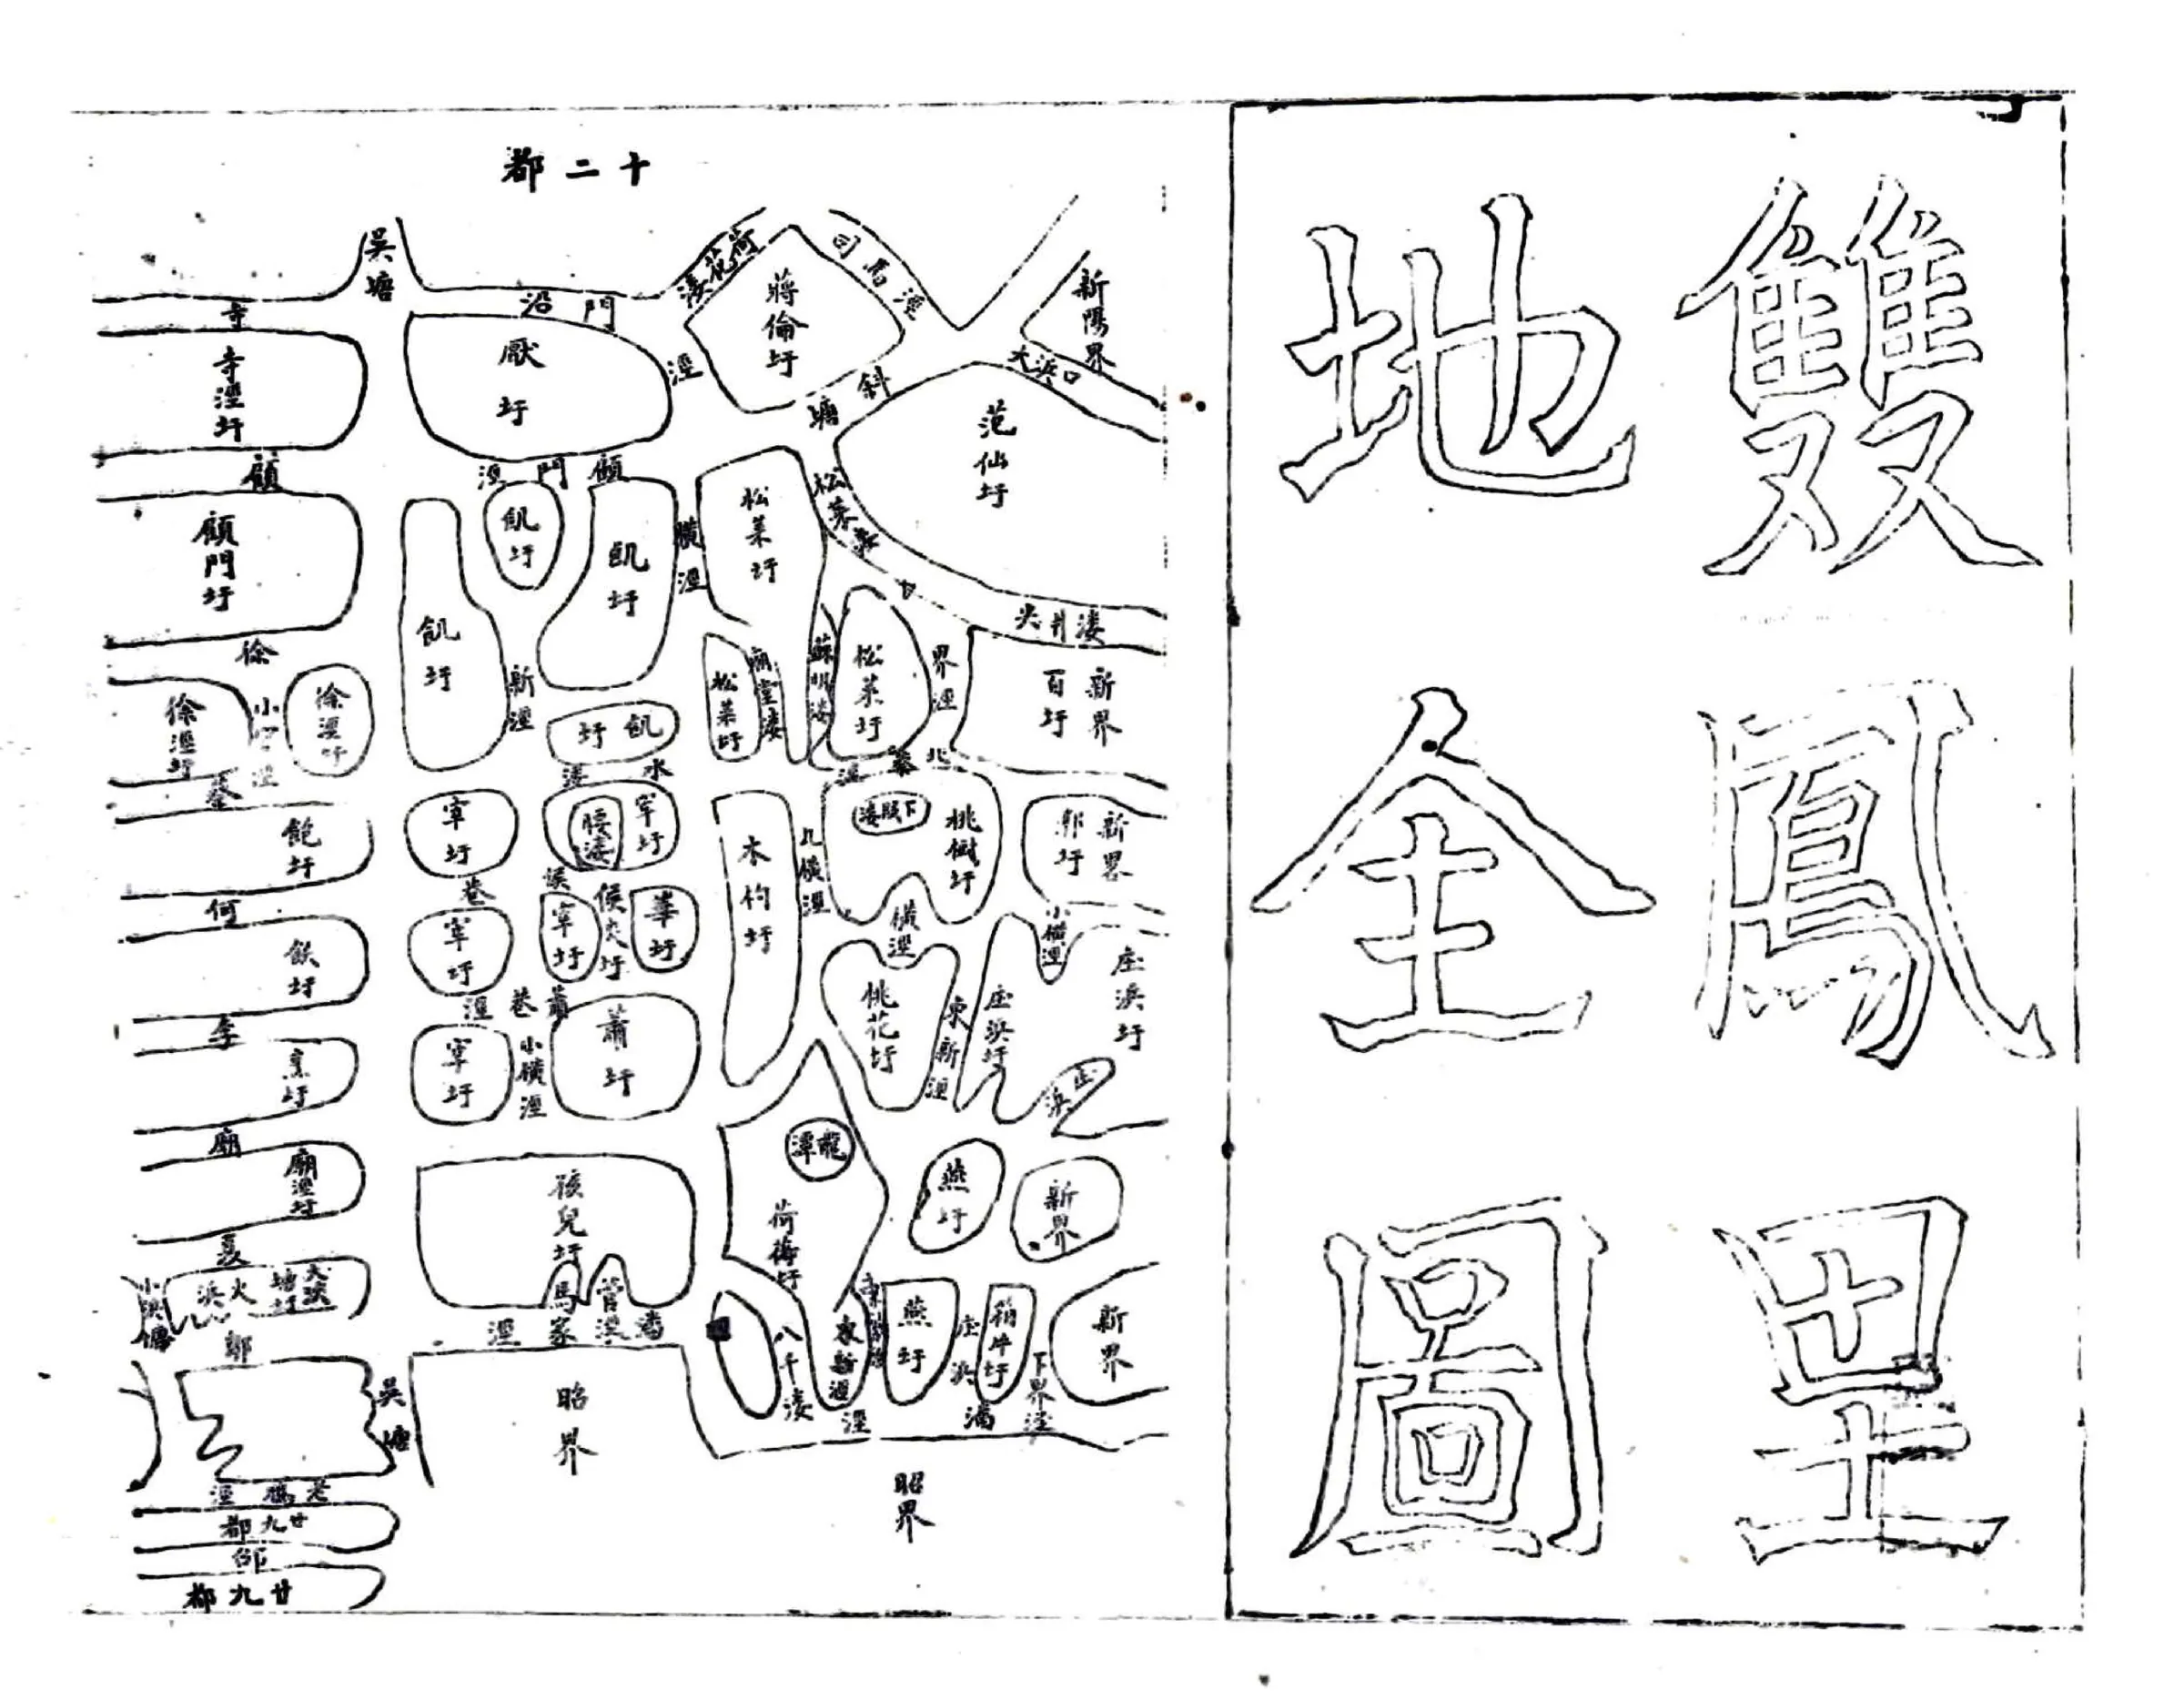 雙鳳里
地全圖
十二都
新陽界
大浜口
司馬涇
荷花漊
蔣倫圩
斜塘
范仙圩
尖井漊
新界
百圩
界涇
松葉圩
松葉圩
松葉圩
廟堂漊
蘇明漊
北
桃樹圩
下腰漊
新界
郭圩
小橫涇
庄浜圩
庄浜圩
庄浜
橫涇
桃花圩
東新涇
木杓圩
龍潭
荷梅圩
燕圩
新界
新界
下界涇
箱片圩
庄浜
浦
燕圩
東新涇
八千漊
涇
昭界
吳塘
沿門
涇
厭圩
顧門涇
飢圩
飢圩
飢圩
飢圩
橫涇
新涇
水漊
窂圩
腰漊
窂圩
巷
侯
侯尖圩
華圩
窂圩
窂圩
蕭巷涇
蕭圩
小橫涇
窂圩
孩兒圩
馬家
管漊
潘
涇
昭界
寺
寺涇圩
顧
顧門圩
徐
徐涇圩
小
涇
徐涇圩
飽圩
何
飲圩
李
烹圩
廟
廟涇圩
夏
大浜
火浜
小浜
郭
吳塘
老鴉涇
廿九都
邵
廿九都